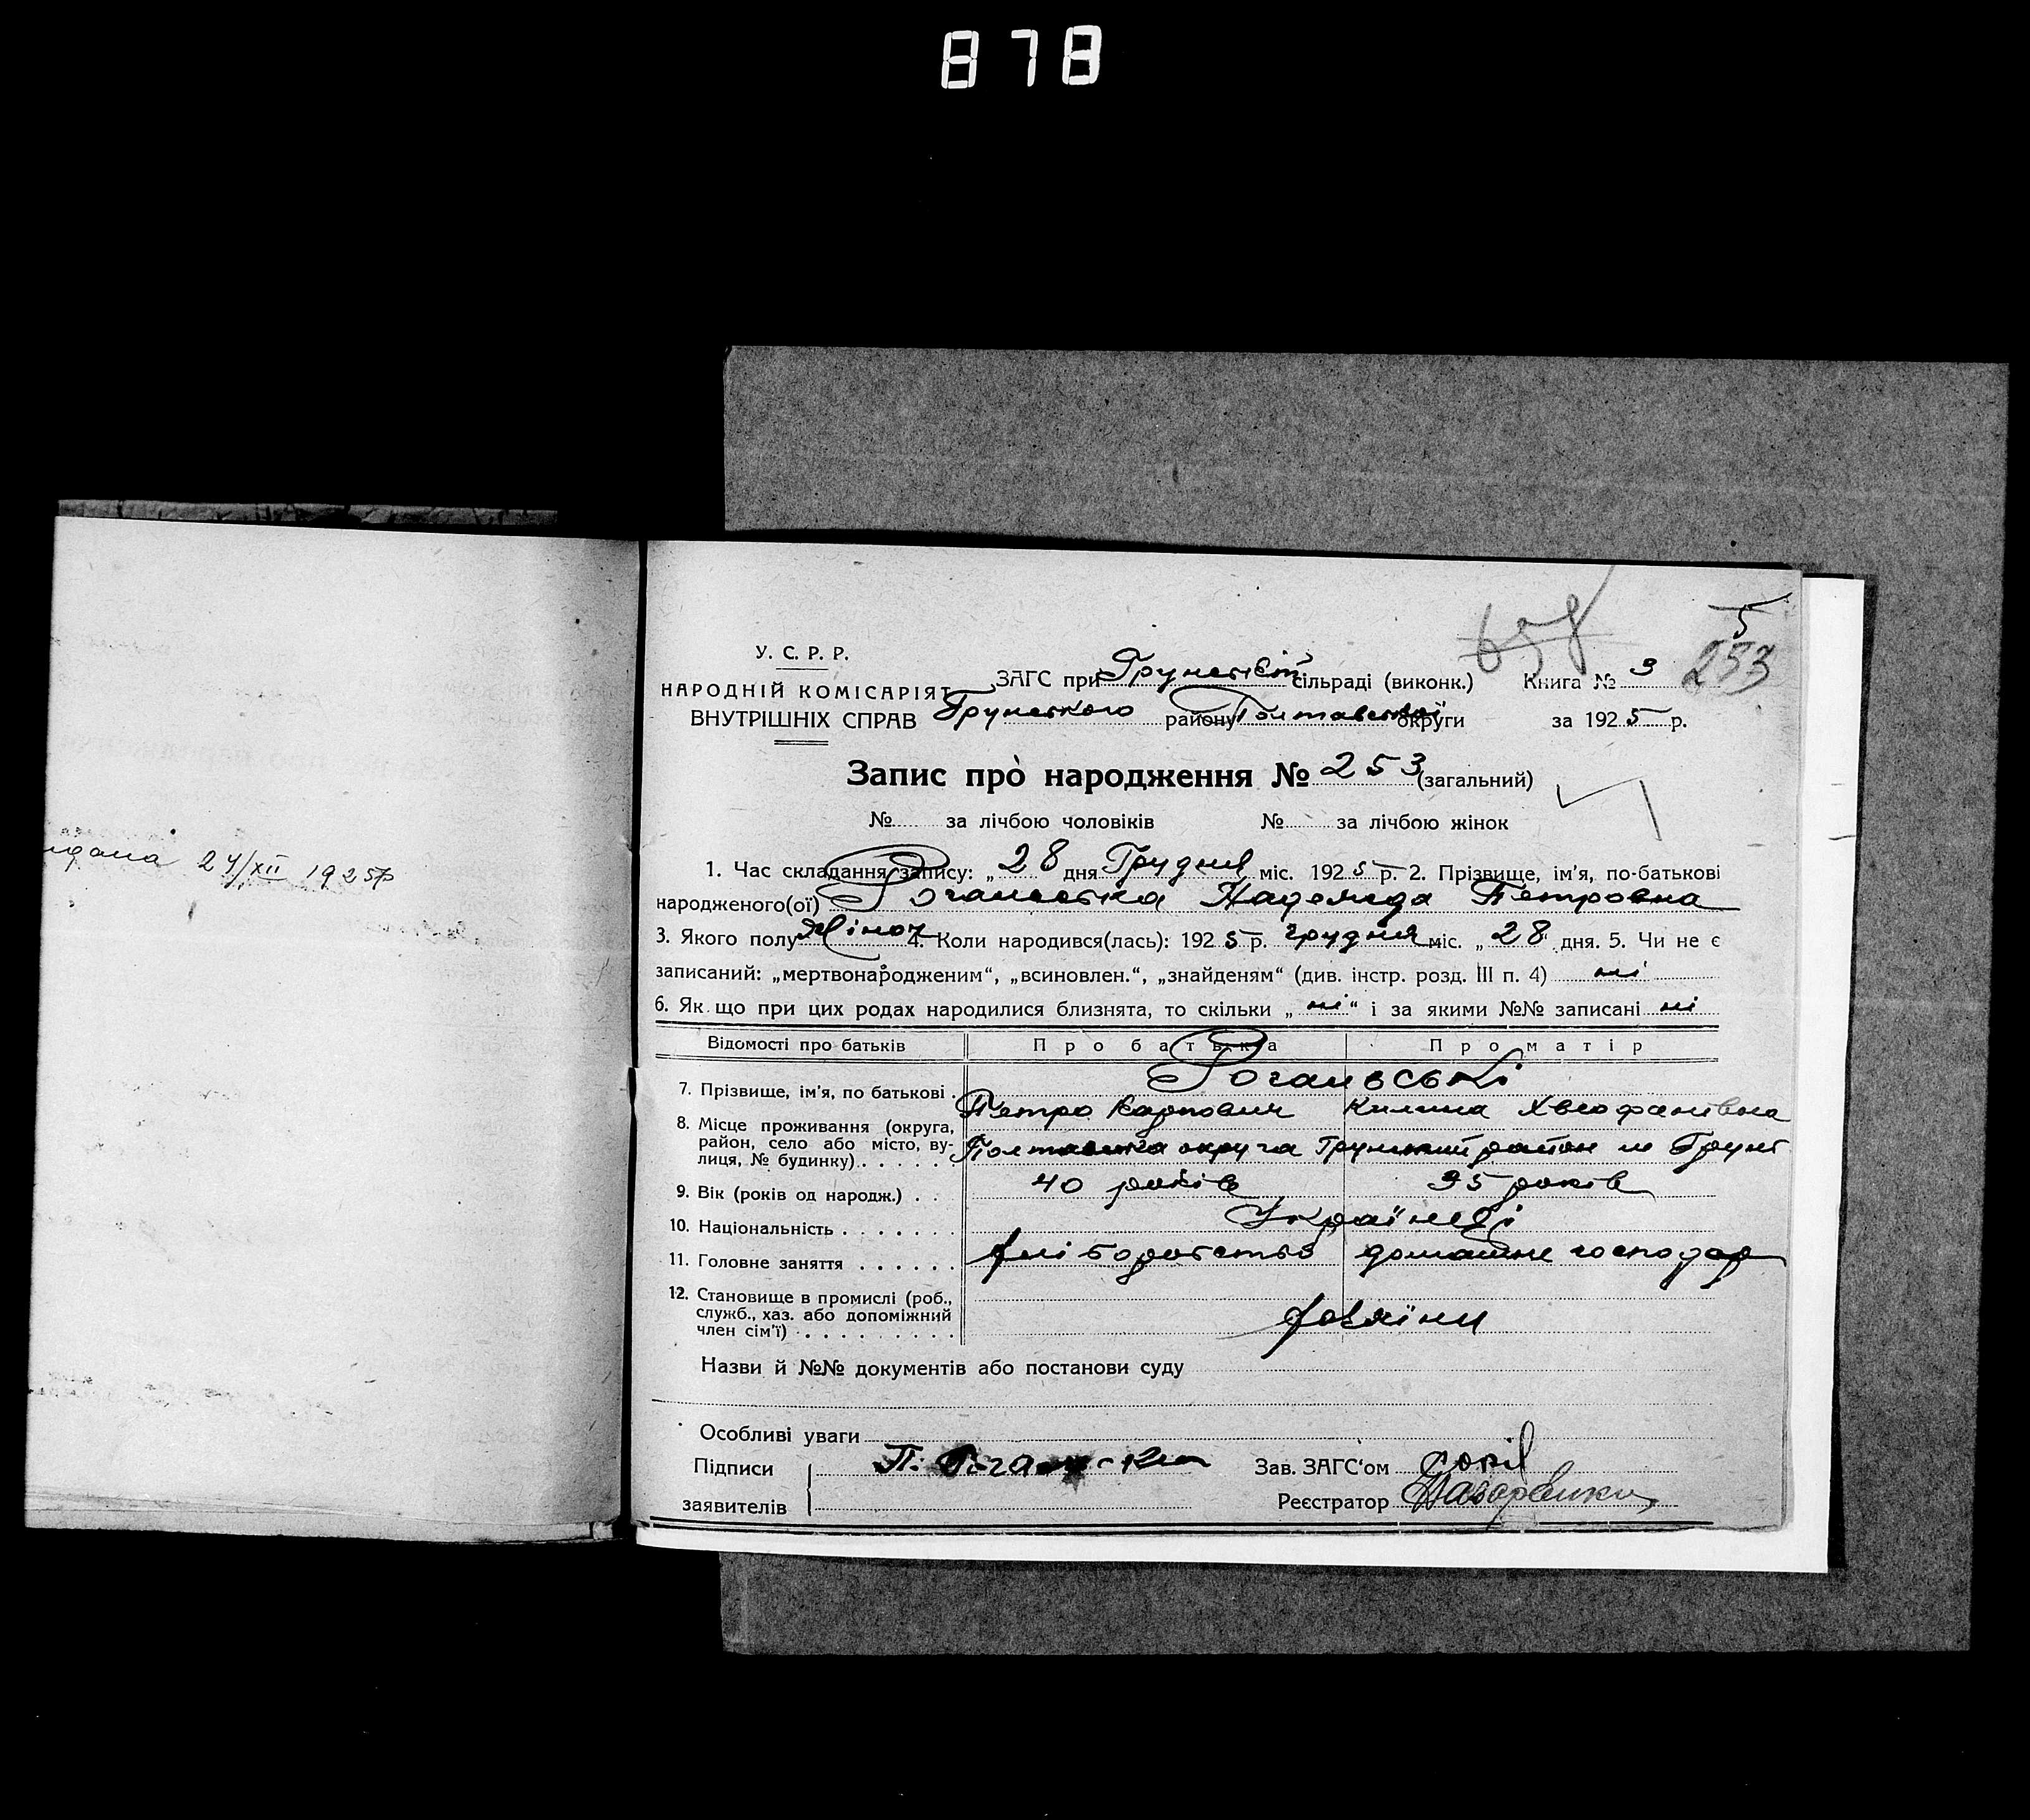 878
658
5
253
У. С. Р. Р.
НАРОДНІЙ КОМІСАРІЯТ
ВНУТРІШНІХ СПРАВ
ЗАГС при Грунській сільраді (виконк.) Книга № 3
Грунського району Полтавської округи за 1925 р.
Запис про народження № 253 (загальний)
№ за лічбою чоловіків № за лічбою жінок
1. Час складання запису: „28 дня Грудня міс. 1925 р. 2. Прізвище, ім'я, по-батькові
народженого(ої) Роганська Надежда Петровна
3. Якого полу Жіноч 4. Коли народився(лась): 1925 р. грудня міс. „28" дня. 5. Чи не є
записаний: „мертвонародженим“, „всиновлен.“, „знайденям“ (див. інстр. розд. III п. 4) ні
6. Як що при цих родах народилися близнята, то скільки „ні“ і за якими №№ записані ні
Відомості про батьків Про батька Про матір
7. Прізвище, ім'я, по батькові . Роганські
Петро Карпович Килина Хвеофанівна
8. Місце проживання (округа, район, село або місто, вулиця, № будинку) . . . . . Полтавська округа Грунський район м Грунь
9. Вік (років од народж.) . . 40 років 35 років
10. Національність . . . . . . Українці
11. Головне заняття . . . . . . хліборобство домашне господар
12. Становище в промислі (роб., служб., хаз. або допоміжний член сім'ї) . . . . . . . . . хазяїни
Назви й №№ документів або постанови суду
Особливі уваги
Підписи П. Зав. ЗАГС'ом
заявителів Реєстратор
24/XII 1925р